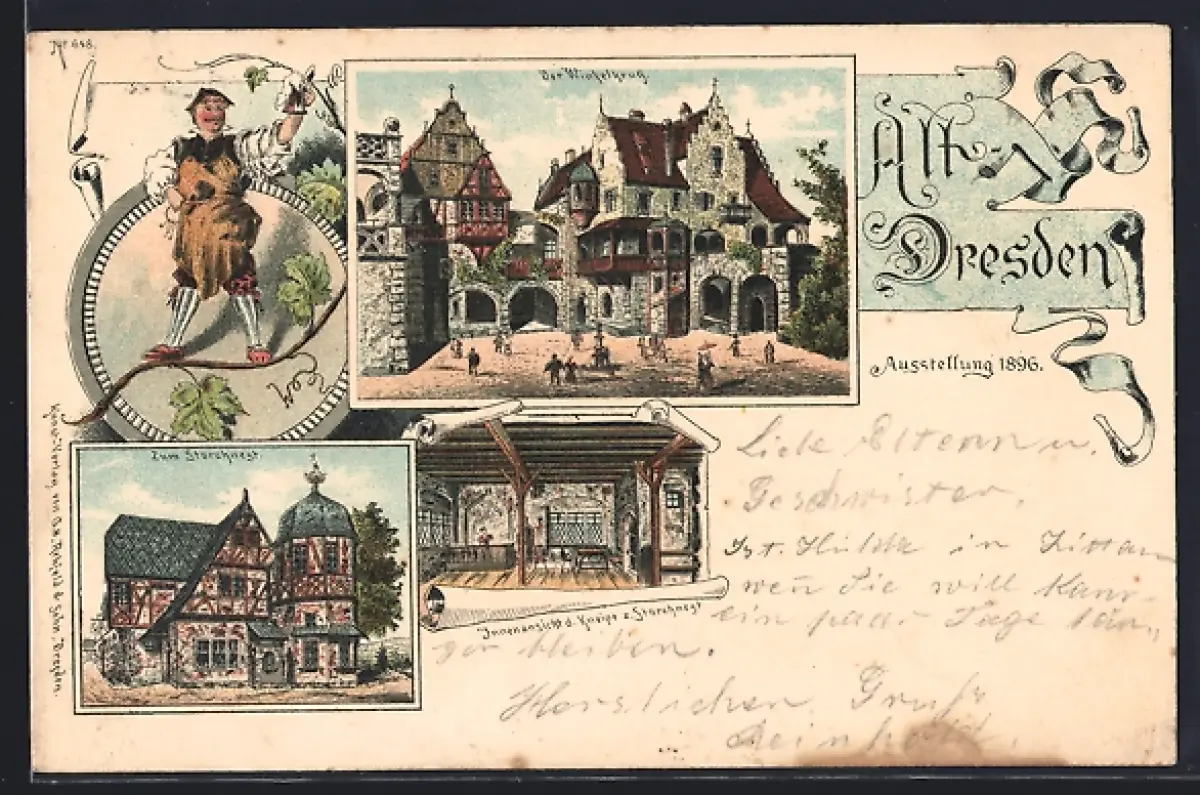 No 648.
Der Winkelkrug
Alt-
Dresden
Ausstellung 1896.
Zum Storchnest
Innenansicht d. Kneipe z. Storchnest
Dresden.
Liebe Eltern u.
Geschwister,
Ist in Zittau
wen Sie will kan
ein paar Tage län
ger bleiben.
Herzlichen Gruß
Reinhold.